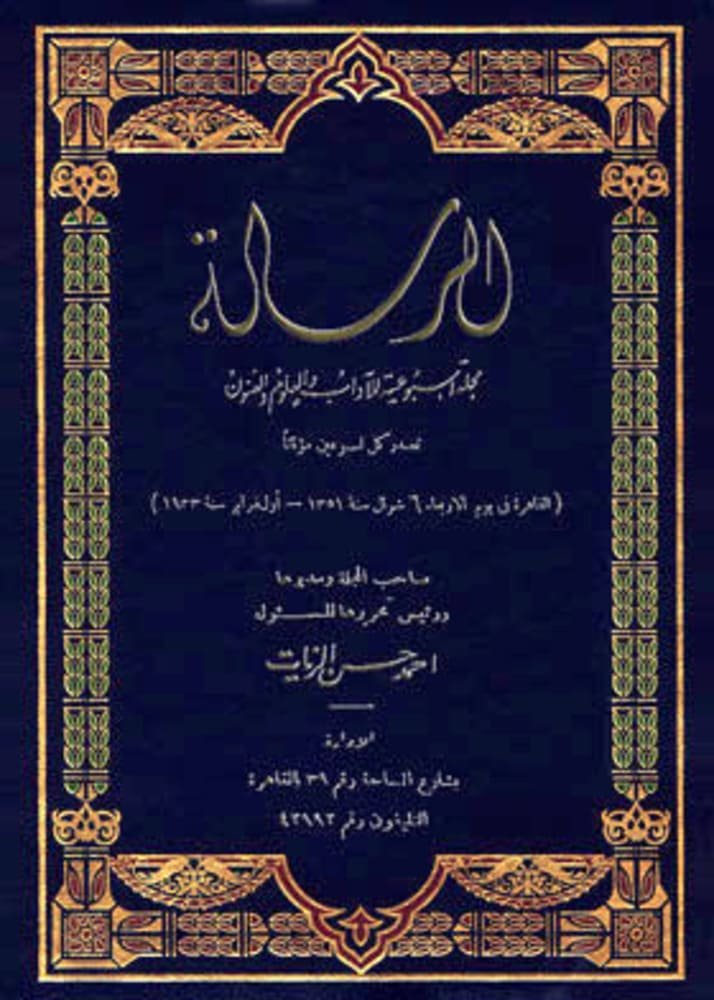 الرسالة
مجلة أسبوعية للآداب والعلوم والفنون
تصدر كل أسبوعين مؤقتاً
(القاهرة في يوم الاربعاء ٦ شوال سنة ١٣٥١ — أول فبراير سنة ١٩٣٣)
صاحب المجلة ومديرها
ورئيس تحريرها المسئول
احمد حسن الزيات
الادارة
بشارع الساحة رقم ٣٩ بالقاهرة
التليفون رقم ٤٢٩٩٢